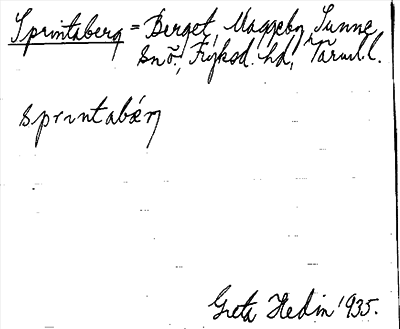 Sprintaberg = Berget, Maggeby Sunne
Sn̄., Fryksd. hd, Värml.
sprintabærj
Greta Hedin 1935.